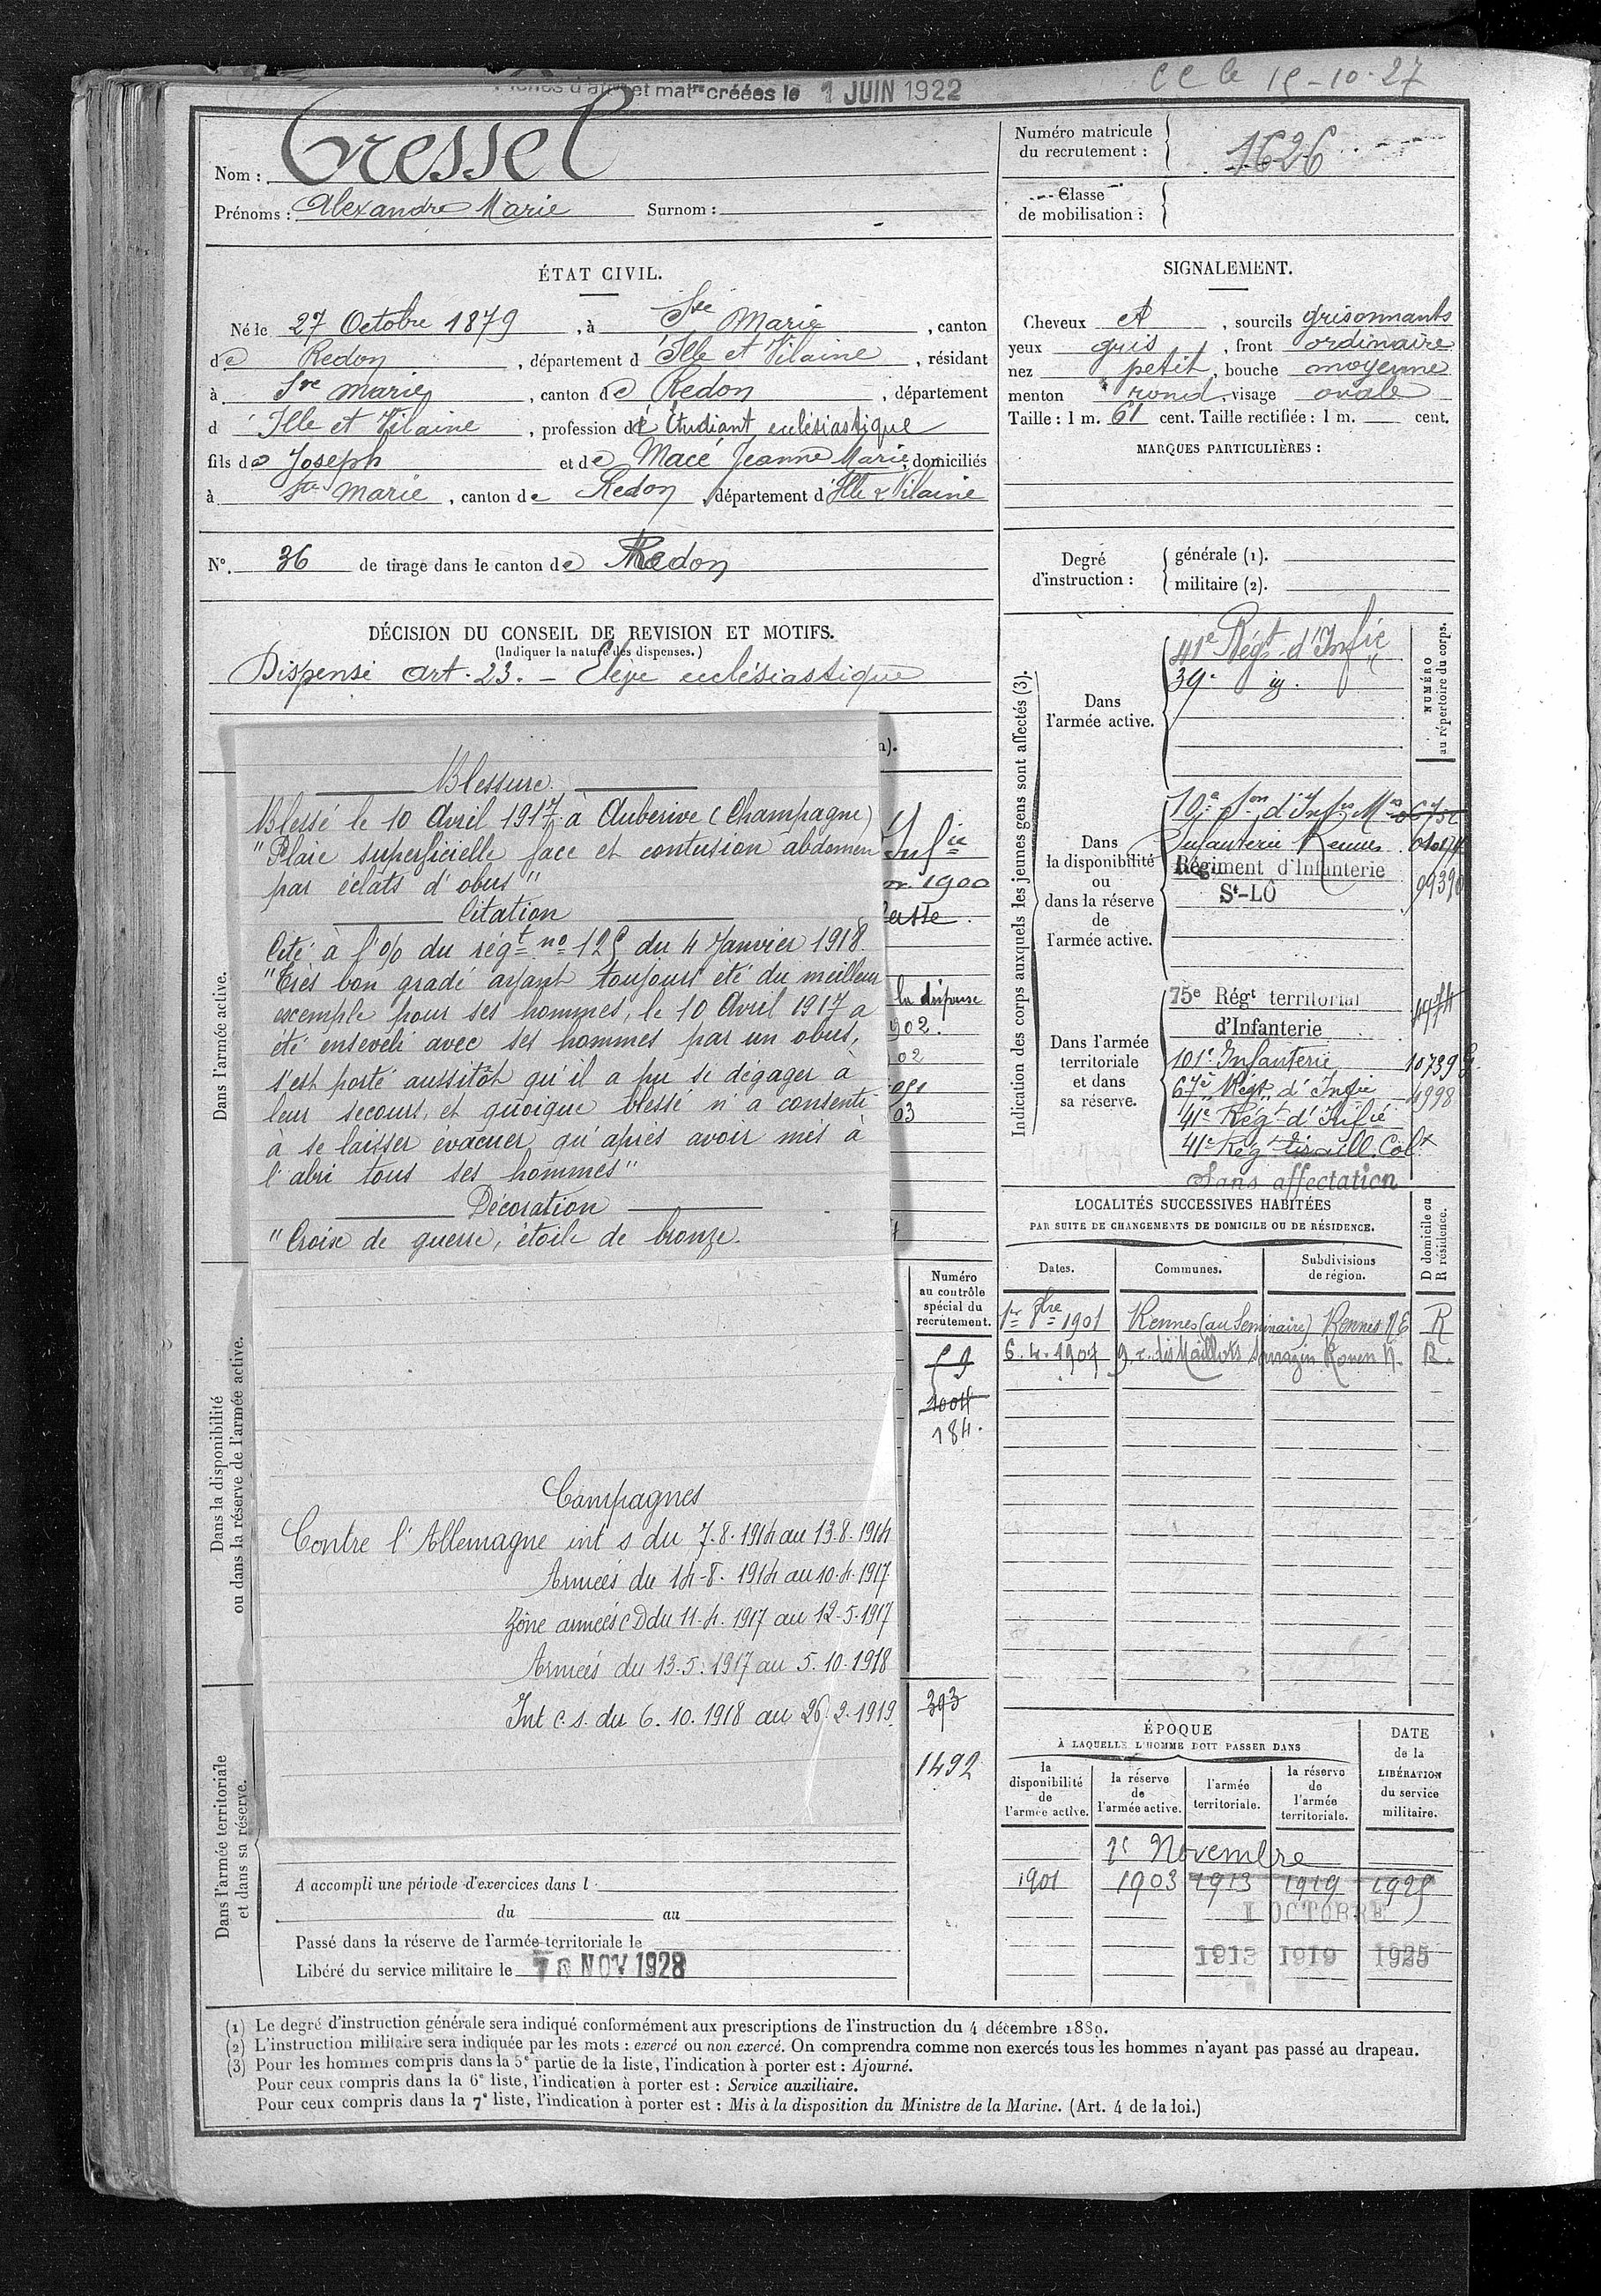 et matre créées le 1 JUIN 1922
CC le 15-10-27
Nom : Tressel
Prénoms : Alexandre Marie Surnom :
Numéro matricule du recrutement : 1626
Classe de mobilisation :
ÉTAT CIVIL.
Né le 27 Octobre 1879, à Ste Marie, canton
de Redon, département d'Ille et Vilaine, résidant
à Ste Marie, canton de Redon, département
d'Ille et Vilaine, profession d'Étudiant ecclésiastique
fils de Joseph et de Macé Jeanne Marie, domiciliés
à Ste Marie, canton de Redon, département d'Ille & Vilaine
N° 36 de tirage dans le canton de Redon
SIGNALEMENT.
Cheveux et, sourcils grisonnants
yeux gris, front ordinaire
nez petit, bouche moyenne
menton rond, visage ovale
Taille : 1 m. 61 cent. Taille rectifiée : 1 m. cent.
MARQUES PARTICULIÈRES :
Degré d'instruction : générale (1).
militaire (2).
DÉCISION DU CONSEIL DE REVISION ET MOTIFS.
(Indiquer la nature des dispenses.)
Dispensé art. 23. – Elève ecclésiastique
Blessure.
Blessé le 10 Avril 1917 à Auberive (Champagne)
"Plaie superficielle face et contusion abdomen
par éclats d'obus"
Citation
Cité à l'o/o du régt no 125 du 4 Janvier 1918.
"Très bon gradé ayant toujours été du meilleur
exemple pour ses hommes, le 10 Avril 1917 a
été enseveli avec ses hommes par un obus,
s'est porté aussitôt qu'il a pu se dégager à
leur secours, et quoique blessé n'a consenti
à se laisser évacuer qu'après avoir mis à
l'abri tous ses hommes"
Décoration
"Croix de guerre, étoile de bronze.
n).
Infie
1900
la dispense
902.
02
03
Campagnes
Contre l'Allemagne int s du 7.8.1914 au 13.8.1914
Armées du 14-8.1914 au 10.4.1917
Zône armées CD du 11.4.1917 au 12-5-1917
Armées du 13.5.1917 au 5.10.1918
Int c.s. du 6.10.1918 au 26.2.1919.
Dans l'armée active.
Dans la disponibilité
ou dans la réserve de l'armée active.
Dans l'armée territoriale
et dans sa réserve.
Numéro
au contrôle
spécial du
recrutement.
59
1004
184.
393
1492
A accompli une période d'exercices dans l
du au
Passé dans la réserve de l'armée territoriale le
Libéré du service militaire le NOV 1928
Indication des corps auxquels les jeunes gens sont affectés (3).
NUMÉRO
au répertoire du corps.
Dans
l'armée active.
41e Régt d'Infie
39e
Dans
la disponibilité
ou
dans la réserve
de
l'armée active.
Infanterie Rennes
Régiment d'Infanterie
St-LÔ
Dans l'armée
territoriale
et dans
sa réserve.
75e Régt territorial 4974
d'Infanterie
101e Infanterie 10739
67e Régt d'Infie 4998
41e Régt d'Infie
41e Rég tiraill. Colx
Sans affectation
LOCALITÉS SUCCESSIVES HABITÉES
PAR SUITE DE CHANGEMENTS DE DOMICILE OU DE RÉSIDENCE.
D domicile ou
R résidence.
Dates. Communes. Subdivisions de région.
1er 8bre 1901 Rennes (au Séminaire) Rennes R
6.4.1907 9 r. des Maillots Sarrazin Rouen N. R.
ÉPOQUE
À LAQUELLE L'HOMME DOIT PASSER DANS
DATE
de la
LIBÉRATION
du service
militaire.
la
disponibilité
de
l'armée active.
la réserve
de
l'armée active.
l'armée
territoriale.
la réserve
de
l'armée
territoriale.
1er Novembre
1901 1903 1913 1919 1925
1 OCTOBRE
1913 1919 1925
(1) Le degré d'instruction générale sera indiqué conformément aux prescriptions de l'instruction du 4 décembre 1889.
(2) L'instruction militaire sera indiquée par les mots : exercé ou non exercé. On comprendra comme non exercés tous les hommes n'ayant pas passé au drapeau.
(3) Pour les hommes compris dans la 5e partie de la liste, l'indication à porter est : Ajourné.
Pour ceux compris dans la 6e liste, l'indication à porter est : Service auxiliaire.
Pour ceux compris dans la 7e liste, l'indication à porter est : Mis à la disposition du Ministre de la Marine. (Art. 4 de la loi.)